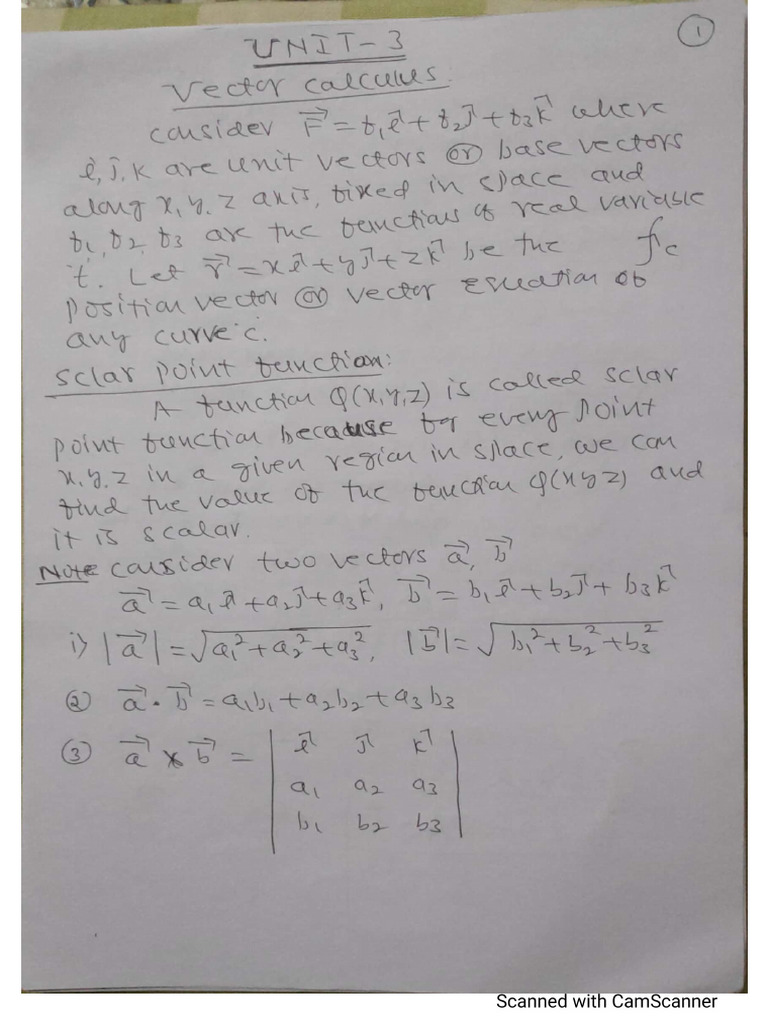 1
UNIT-3
Vector calculus:
consider F⃗ = f₁i⃗ + f₂j⃗ + f₃k⃗ where
i, j, k are unit vectors or base vectors
along x, y, z axis, fixed in space and
f₁, f₂, f₃ are the functions of real variable
t. Let r⃗ = xi⃗ + yj⃗ + zk⃗ be the
position vector or vector equation of
any curve 'c.
sclar point function:
A function φ(x,y,z) is called sclar
point function because for every point
x,y,z in a given region in space, we can
find the value of the function φ(xyz) and
it is scalar.
Note consider two vectors a⃗, b⃗
a⃗ = a₁i⃗ + a₂j⃗ + a₃k⃗, b⃗ = b₁i⃗ + b₂j⃗ + b₃k⃗
i) |a⃗| = √a₁² + a₂² + a₃², |b⃗| = √b₁² + b₂² + b₃²
② a⃗ · b⃗ = a₁b₁ + a₂b₂ + a₃b₃
③ a⃗ × b⃗ = | i⃗ j⃗ k⃗ |
a₁ a₂ a₃
b₁ b₂ b₃
Scanned with CamScanner